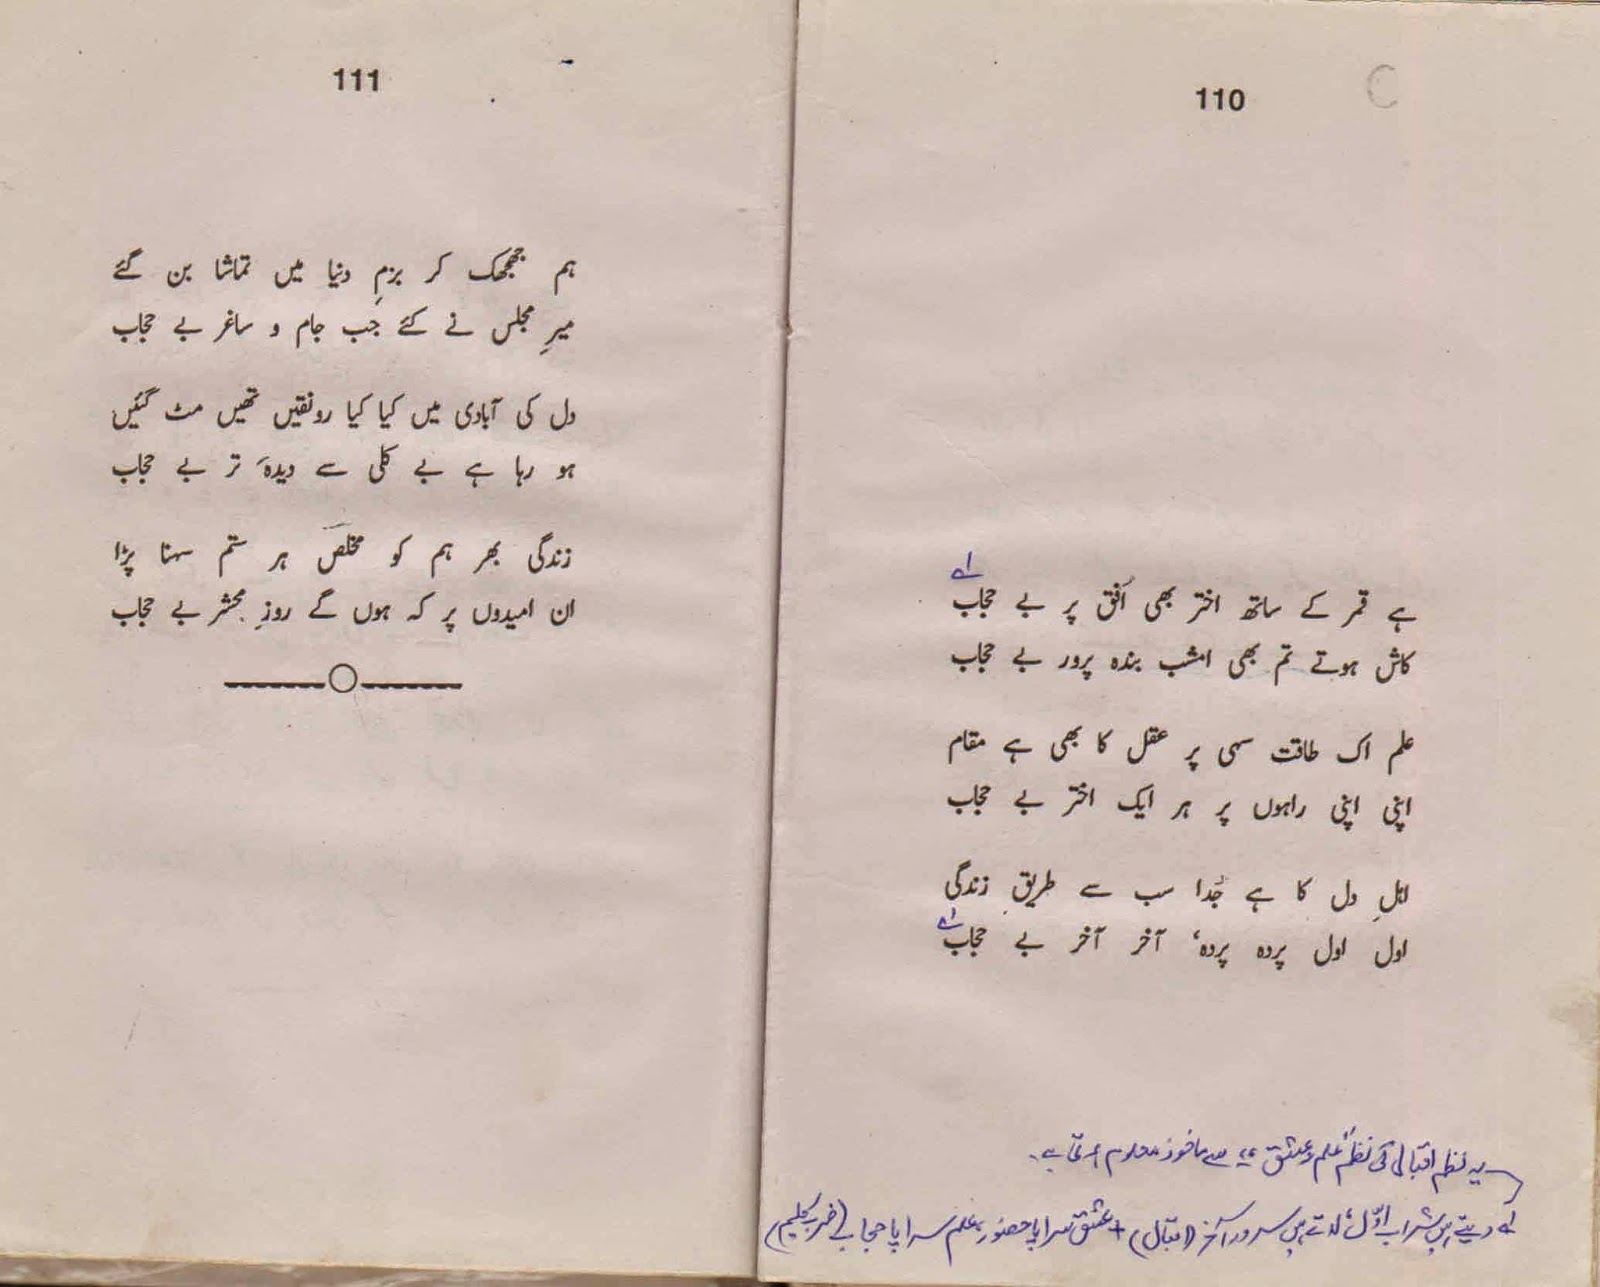 110
ہے قمر کے ساتھ اختر بھی اُفق پر بے حجاب
کاش ہوتے تم بھی امشب بندہ پرور بے حجاب
علم اک طاقت سہی پر عقل کا بھی ہے مقام
اپنی اپنی راہوں پر ہر ایک اختر بے حجاب
اہلِ دل کا ہے جُدا سب سے طریقِ زندگی
اول اول پردہ پردہ، آخر آخر بے حجاب
یہ نظم اقبال کی نظم "علم و عشق" سے ماخوذ معلوم ہوتی ہے۔
لے دیتے ہیں شراب اوّل، لاتے ہیں سرور آخر (اقبال) + عشق سراپا حضور، علم سراپا حجاب (ضرب کلیم)
111
ہم جھجھک کر بزمِ دنیا میں تماشا بن گئے
میرِ مجلس نے کئے جب جام و ساغر بے حجاب
دل کی آبادی میں کیا کیا رونقیں تھیں مٹ گئیں
ہو رہا ہے بے کلی سے دیدۂ تر بے حجاب
زندگی بھر ہم کو مخلصؔ ہر ستم سہنا پڑا
ان امیدوں پر کہ ہوں گے روزِ محشر بے حجاب